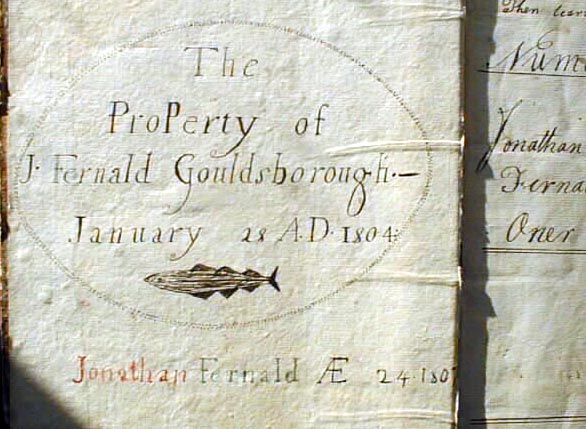 The
ProPerty of
J. Fernald Gouldsborough.—
January 28 A.D. 1804
Jonathan Fernald Æ 24. 180
Then
Num
Jonathan
Ferna
Oner